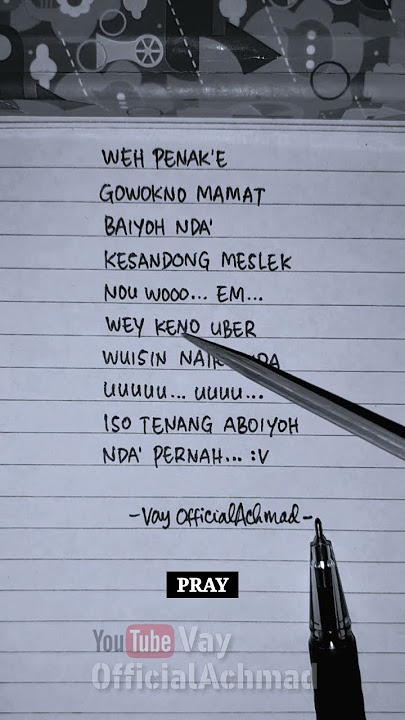 WEH PENAK'E
GOWOKNO MAMAT
BAIYOH NDA'
KESANDONG MESLEK
NOU WOOO... EM...
WEY KENO UBER
WUISIN NAIK
UUUUU... UUUU...
ISO TENANG ABOIYOH
NDA' PERNAH... :V
-Vay OfficialAchmad-
PRAY
YouTube Vay
OfficialAchmad